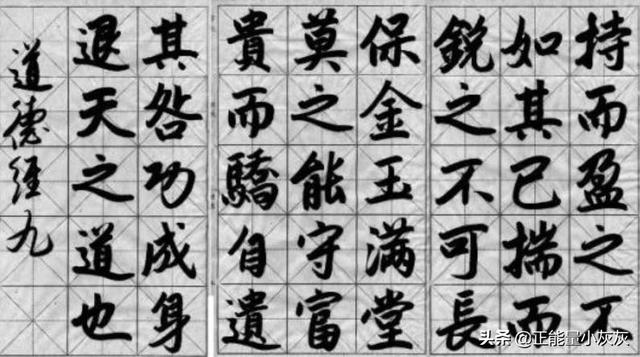 持而盈之不
如其已揣而
銳之不可長
保金玉滿堂
莫之能守富
貴而驕自遺
其咎功成身
退天之道也
道德經九
头条 @正能量小灰灰